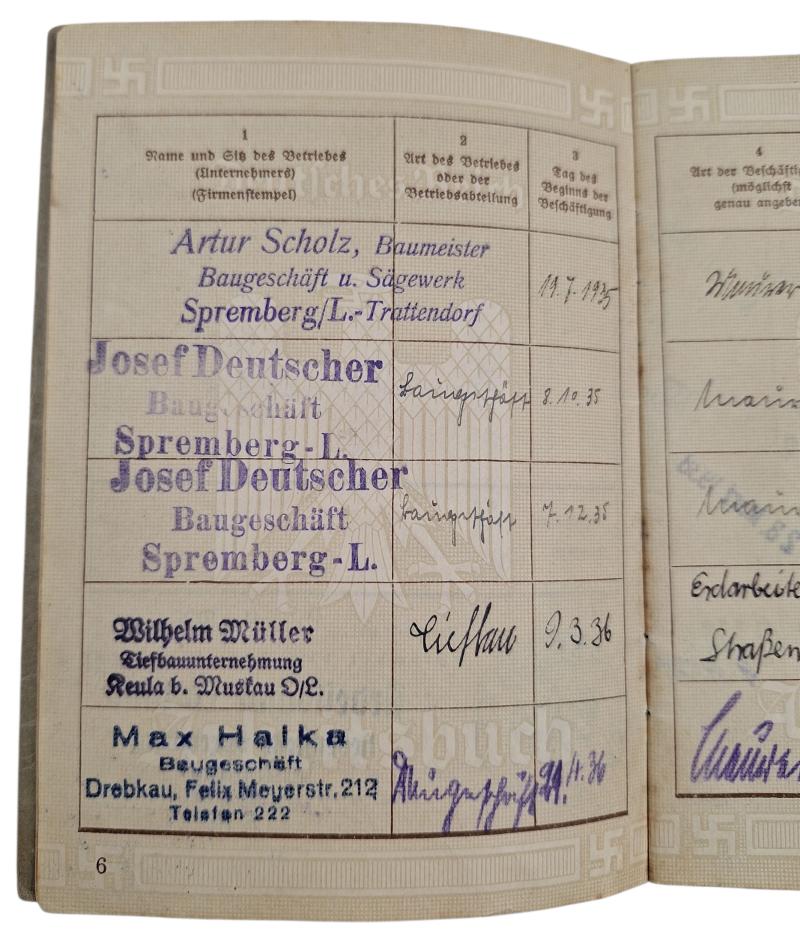 1
Name und Sitz des Betriebes
(Unternehmers)
(Firmenstempel)
2
Art des Betriebes
oder der
Betriebsabteilung
3
Tag des
Beginns der
Beschäftigung
4
Art der Beschäftig
(möglichst
genau angeben
Artur Scholz, Baumeister
Baugeschäft u. Sägewerk
Spremberg/L.-Trattendorf
19.7.1935
Maurer
Josef Deutscher
Baugeschäft
Spremberg-L.
Baugeschäft
8.10.35
Maur
Josef Deutscher
Baugeschäft
Spremberg-L.
Baugeschäft
7.12.35
Maur
Wilhelm Müller
Tiefbauunternehmung
Keula b. Muskau O/L.
Tiefbau
9.3.36
Erdarbeite
Straßen
Max Halka
Baugeschäft
Drebkau, Felix Meyerstr. 212
Telefon 222
Baugeschäft
Maurer
6